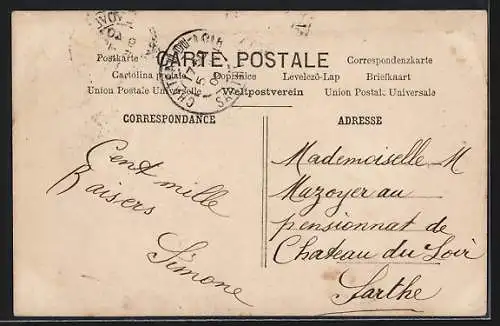 CARTE POSTALE
Postkarte Correspondenzkarte
Cartolina postale Dopisnice Levelező-Lap Briefkaart
Union Postale Universelle Weltpostverein Union Postale Universale
CORRESPONDANCE
Cent mille
Baisers
Simone
ADRESSE
Mademoiselle M
Mazoyer au
pensionnat de
Chateau du Loir
Sarthe